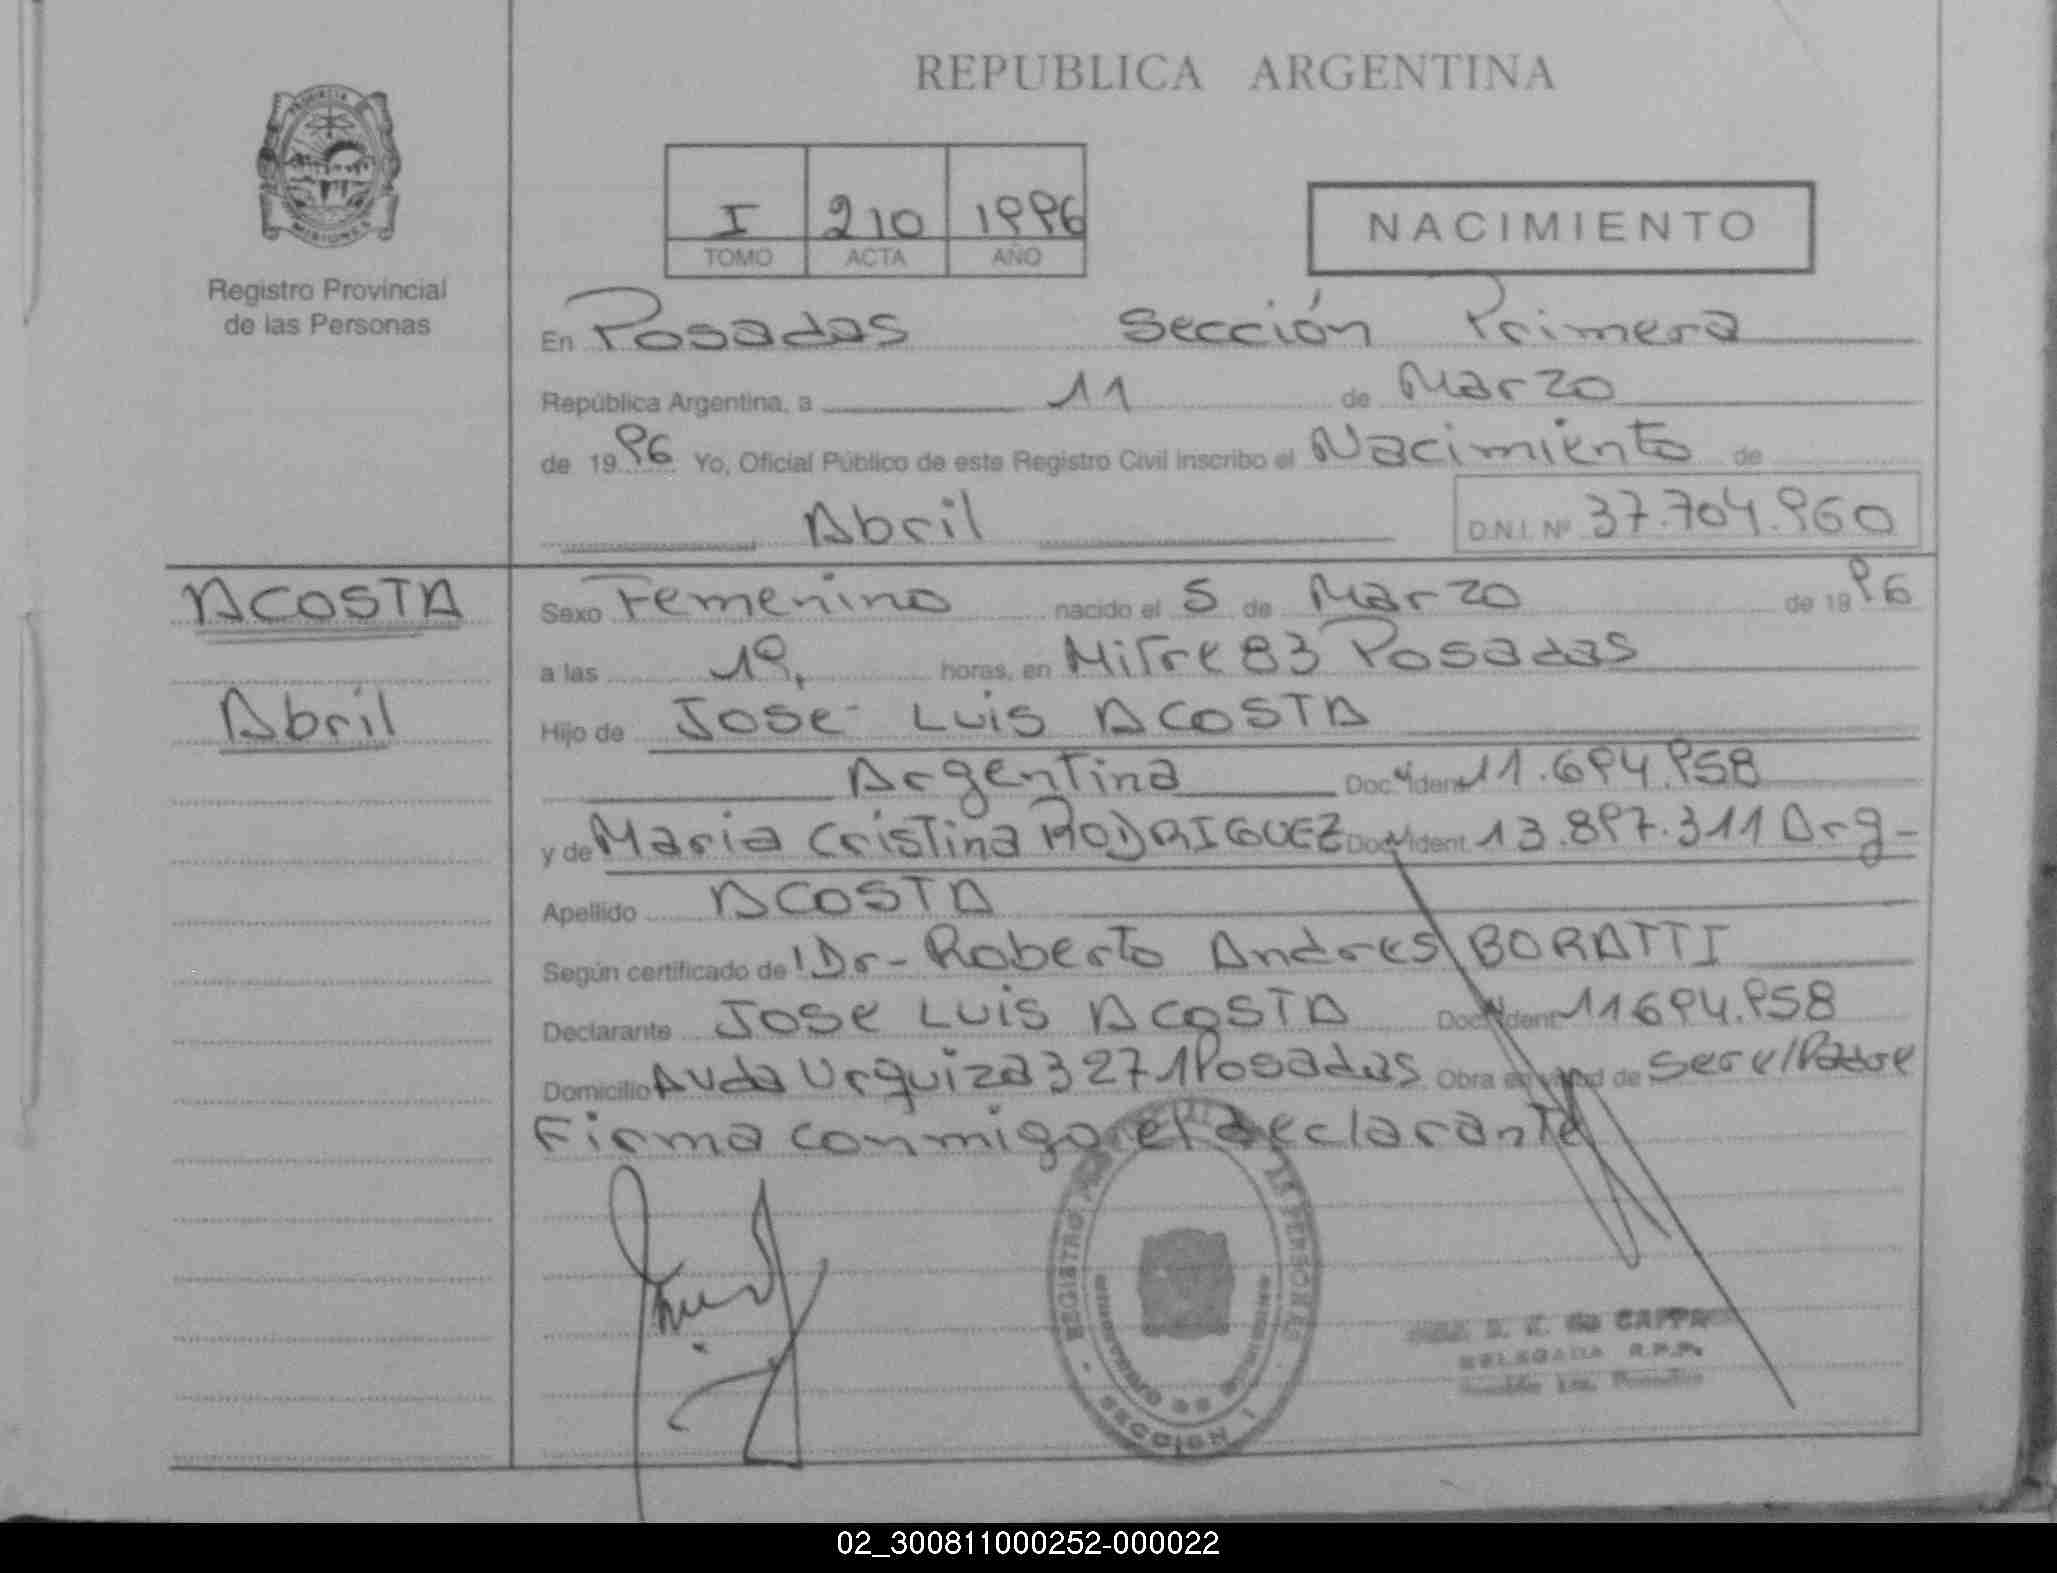 REPUBLICA ARGENTINA
PROVINCIA
MISIONES
Registro Provincial
de las Personas
I 210 1996
TOMO ACTA AÑO
NACIMIENTO
En Posadas Sección Primera
República Argentina, a 11 de Marzo
de 1996 Yo, Oficial Público de este Registro Civil inscribo el Nacimiento de
Abril D.N.I. Nº 37.704.960
ACOSTA
Abril
Sexo Femenino nacido el 5 de Marzo de 1996
a las 19, horas, en Mitre 83 Posadas
Hijo de José Luis ACOSTA
Argentina Doc. Ident 11.694.958
y de Maria Cristina RODRIGUEZ Doc. Ident. 13.897.311 Arg-
Apellido ACOSTA
Según certificado de Dr- Roberto Andres BORATTI
Declarante Jose Luis ACOSTA Doc. Ident. 11694.958
Domicilio Avda Urquiza 3271 Posadas Obra en de ser el Padre
Firma conmigo el declarante
REGISTRO PERSONAS
SECCION I
de CAPPA
DELEGADA R.P.P.
02_300811000252-000022